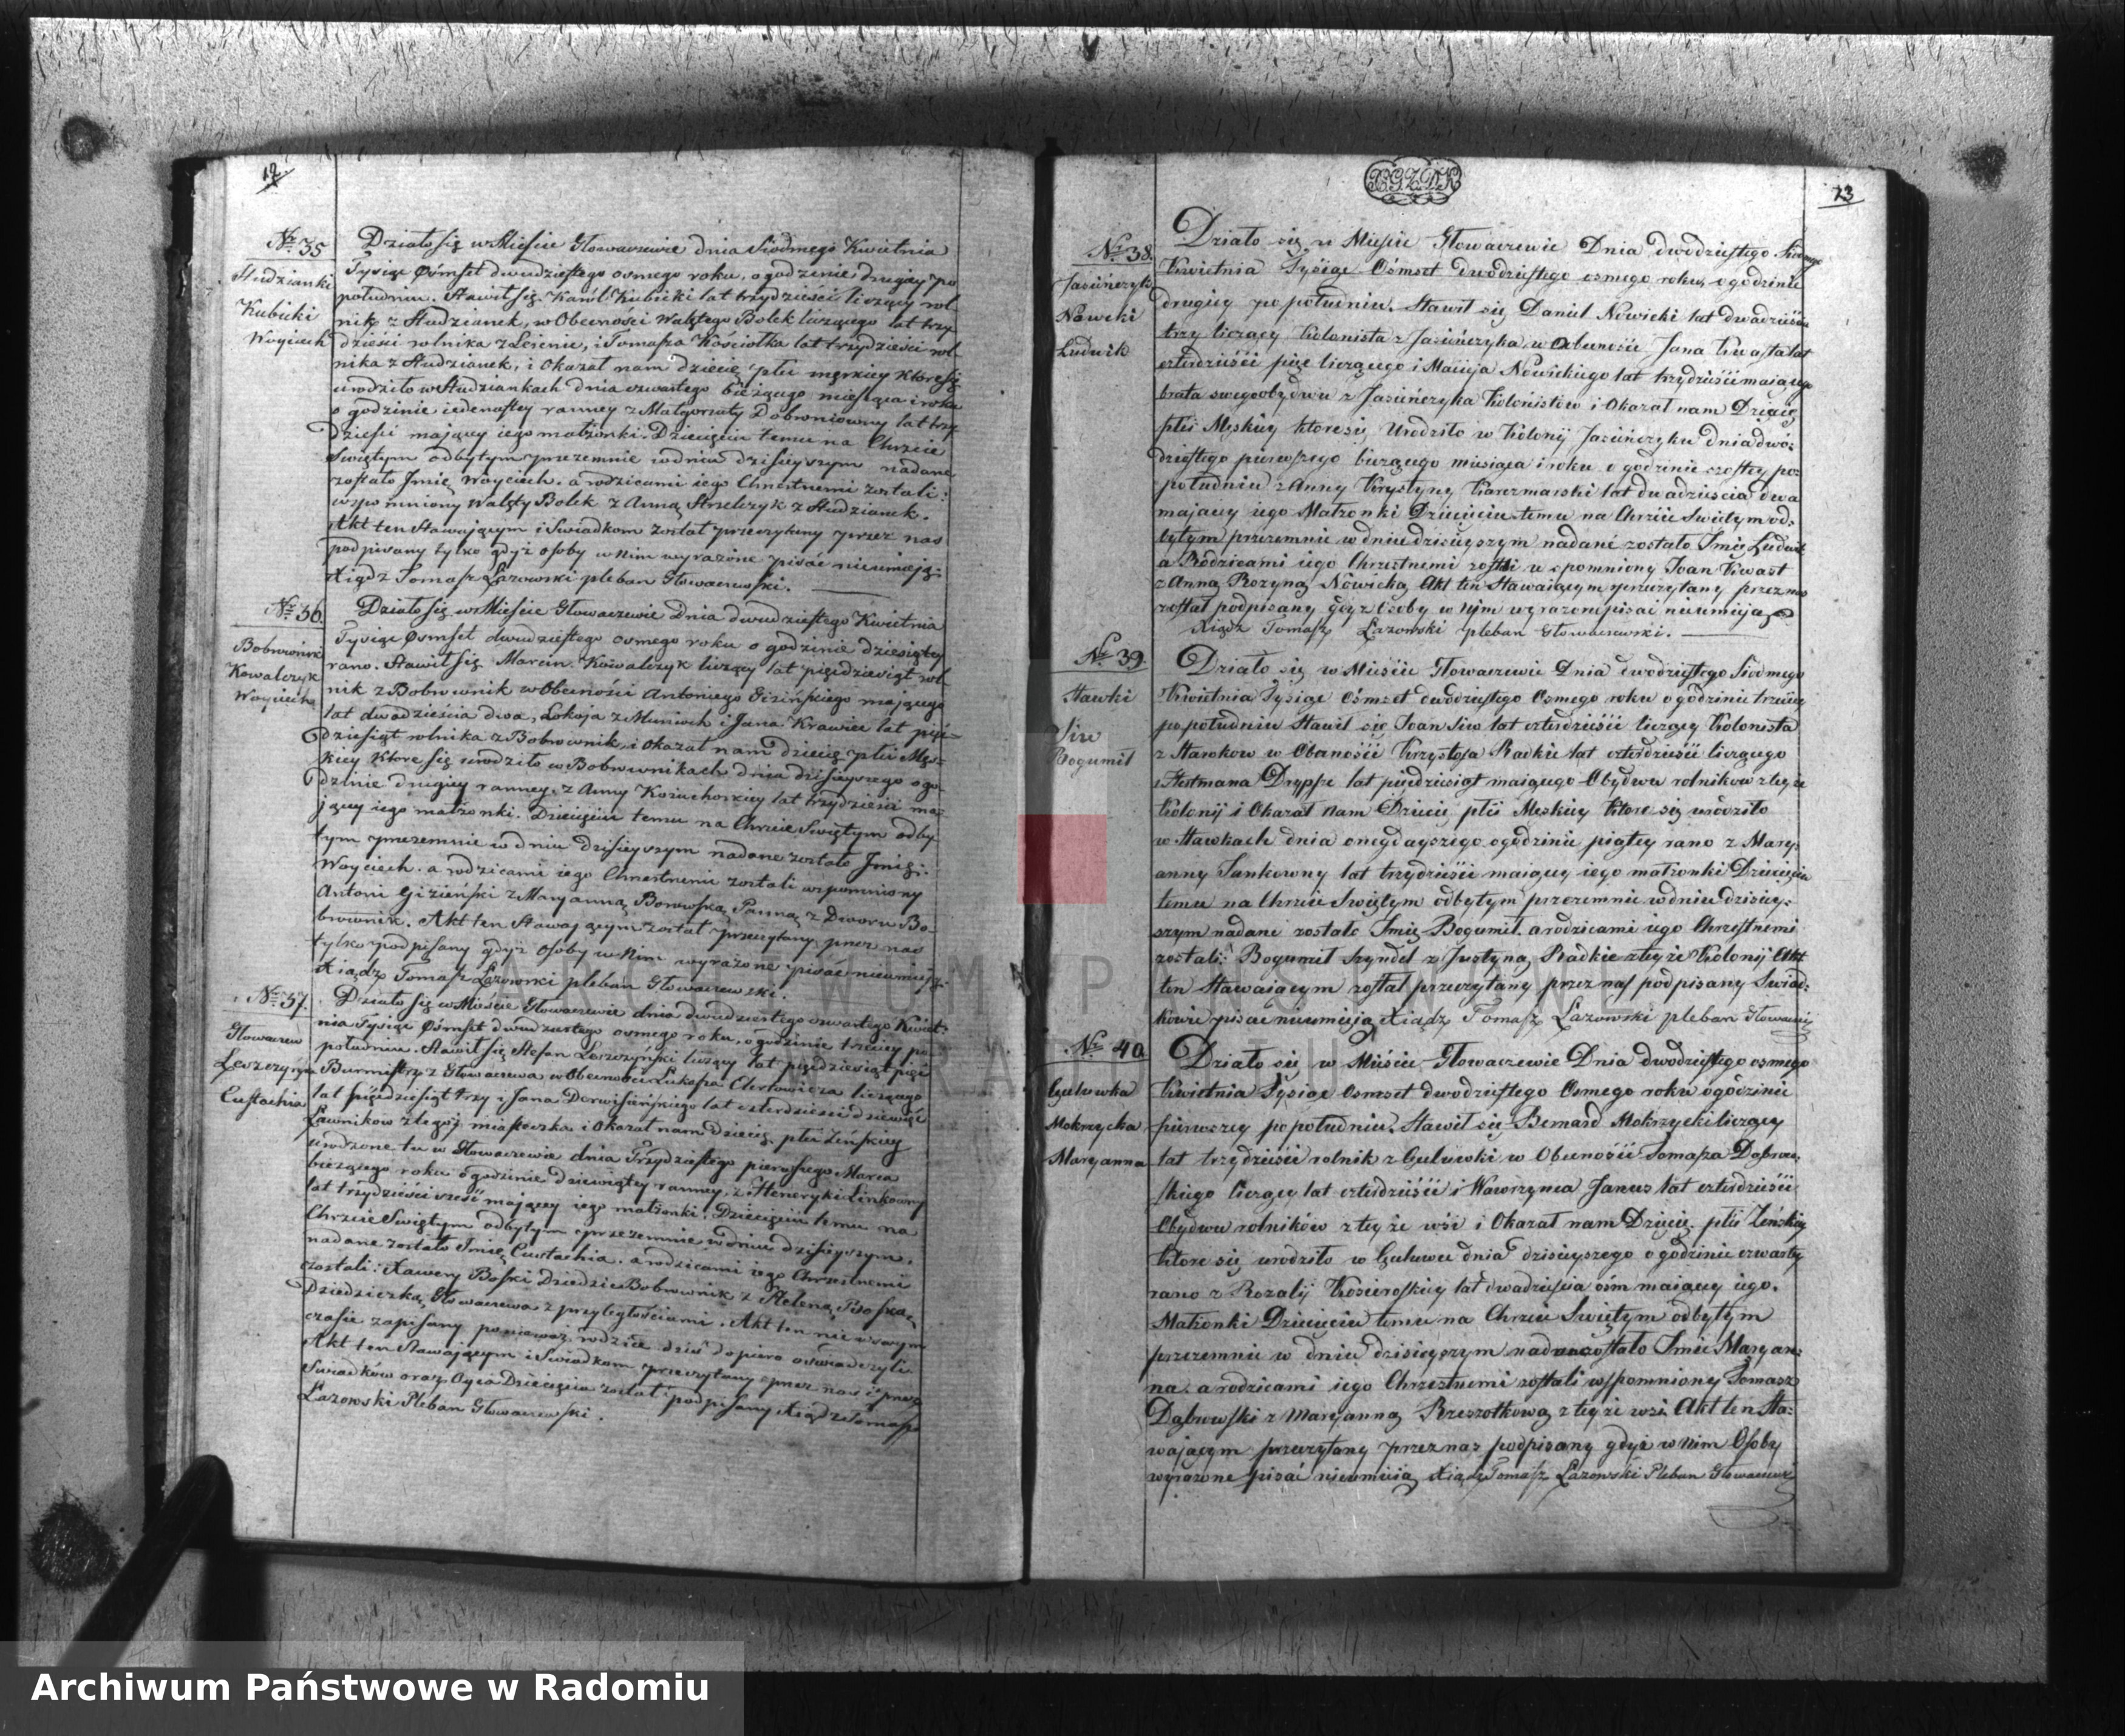 12
Nr. 35
Studzianki
Kubicki
Woyciech
Działo się w Mieście Głowaczewie dnia Siodmego Kwietnia
Tysiąc Ośmset dwudziestego osmego roku, o godzinie drugiey po
południu. Stawił się Karól Kubicki lat trzydzieści liczący rol-
nik z Studzianek, w Obecności Walętego Bolek liczącego lat trzy
dzieści rolnika z Lezenic, i Tomasza Kościołka lat trzydzieści rol-
nika z Studzianek, i Okazał nam dziecię płci męzkiey które się
urodziło w Studziankach dnia czwartego bieżącego miesiąca i roku
o godzinie iedenastey ranney z Małgorzaty Dobroniowny lat trzy
dzieści maiący iego małżonki. Dziecięciu temu na Chrzcie
Swiętym odbytym przezemnie w dniu dzisieyszym nadane
zostało Jmię Woyciech. a rodzicami iego Chrzestnemi zostali:
wspomniony Walęty Bolek z Anną Strzelczyk z Studzianek.
Akt ten Stawaiącym i Swiadkom został przeczytany przez nas
podpisany tylko gdyż osoby w nim wyrażone pisać nieumieią.
Xiądz Tomasz Lazowski pleban Głowaczewski.
Nr. 36.
Bobrownik
Kowalczyk
Woyciech
Działo się w Mieście Głowaczewie Dnia dwudziestego Kwietnia
Tysiąc Ośmset dwudziestego osmego roku o godzinie dziesiątey
rano. Stawił się Marcin Kowalczyk liczący lat pięćdziesiąt rol-
nik z Bobrownik w Obecności Antoniego Gizińskiego maiącego
lat dwadzieścia dwa, Lokaja z Mniszech i Jana Krawiec lat pięć-
dziesiąt rolnika z Bobrownik, i okazał nam dziecię płci Męz-
kiey Które się urodziło w Bobrownikach dnia dzisieyszego o go-
dzinie drugiey ranney, z Anny Kozuchoskiey lat trzydzieści ma-
jącey iego małżonki. Dziecięciu temu na Chrzcie Swiętym odby
tym przezemnie w dniu dzisieyszym nadane zostało Jmię:
Woyciech. a rodzicami iego Chrzestnemi zostali wspomniony
Antoni Gizieński z Maryanną Borowską Panną z Dworu Bo-
brownik. Akt ten Stawaiącym został przeczytany przez nas
tylko podpisany gdyż osoby w Nim wyrażone pisać nieumieją.
Xiądz Tomasz Lazowski pleban Głowaczewski.
Nr. 37.
Głowaczew
Leszczyńska
Eustachia
Działo się w Mieście Głowaczewie dnia dwudziestego czwartego Kwiet-
nia Tysiąc Ośmset dwudziestego osmego roku, o godzinie trzeciey po
południu. Stawił się Stefan Leszczyński liczący lat pięćdziesiąt pięć
Burmistrz z Głowaczewa w Obecności Łukasza liczącego
lat pięćdziesiąt trzy i Jana Derwisińskiego lat czterdzieści dziewięć
Ławnikow z tegoż miasteczka i Okazał nam dziecię płci Żeńskiey
urodzone tu w Głowaczewie dnia Trzydziestego pierwszego Marca
bieżącego roku o godzinie dziewiątey ranney, z Heneryki Linkowny
lat trzydzieści sześć maiącey iego małżonki. Dziecięciu temu na
Chrzcie Swiętym odbytym przezemnie w dniu dzisieyszym,
nadane zostało Imie, Eustachia. a rodzicami iego Chrzestnemi
zostali: Xawery Boski Dziedzic Bobrownik z Heleną Boską,
Dziedziczką Głowaczewa z przyległościami. Akt ten nie w swym
czasie zapisany ponieważ rodzice dziś dopiero oświadczyli.
Akt ten Stawającym i Swiadkom przeczytany przez nas i przez
Swiadków oraz Oyca Dziecięcia został podpisany Xiądz Tomasz
Lazowski Pleban Głowaczewski.
13
Nr. 38.
Jasińczyk
Nowicki
Ludwik
Działo się w Mieście Głowaczewie Dnia dwódziestego Siodmego
Kwietnia Tysiąc Ośmset dwódziestego osmego roku, o godzinie
drugiey po południu. Stawił się Daniel Nowicki lat dwadzieścia
trzy liczący Kolonista z Jasińczyka w Obecności Jana Kwasta lat
czterdzieści pięć liczącego i Macieja Nowickiego lat trzydzieści maiącego
brata swego obydwu z Jasińczyka Kolonistow i Okazał nam Dziecię
płci Męskiey ktore się Urodziło w Kolonij Jasińczyku dnia dwó-
dziestego pierwszego bieżącego miesiąca i roku o godzinie szostey po-
południu z Anny Krystyny Karczmarski lat dwadzieścia dwa
maiącey iego Małżonki Dziecięciu temu na Chrzcie Swiętym od-
bytym przezemnie w dniu dzisieyszym nadane zostało Imię Ludwik
a Rodzicami iego Chrzestnemi zostali wspomniony Joan Kwast
z Anną Rozyną Nowicką Akt ten Stawaiącym przeczytany przez nas
został podpisany gdyz Osoby w Nim wyrazone pisać nieumieją
Xiądz Tomasz Lazowski pleban Głowaczewski.
Nr. 39.
Stawki
Siw
Bogumił
Działo się w Mieście Głowaczewie Dnia dwodziestego Siodmego
Kwietnia Tysiąc Ośmset dwódziestego Osmego roku o godzinie trzeciey
po południu Stawił się Joan Siw lat czterdzieści liczący Kolonista
z Stawkow w Obecności Krzysztofa Radkie lat czterdzieści liczącego
i Hertmana Dryppe lat pięćdziesiąt maiącego Obydwu rolnikow z teyże
Kolonij i Okazał nam Dziecię płci Męskiey ktore się urodziło
w Stawkach dnia onegdayszego o godzinie piątey rano z Mary-
anny Sankowny lat trzydzieści maiącey iego małzonki Dziecięciu
temu na Chrzcie Swiętym odbytym przezemnie w dniu dzisiey-
szym nadane zostało Imię Bogumił. a rodzicami iego Chrzestnemi
zostali: Bogumił Szyndel z Justyną Radkie z teyże Kolonij Akt
ten Stawaiącym został przeczytany przez nas podpisany Swiad-
kowie pisac nieumieją Xiądz Tomasz Lazowski pleban Głowaczewski
Nr. 40
Gulowka
Mokrzycka
Maryanna
Działo się w Mieście Głowaczewie Dnia dwodziestego osmego
Kwietnia Tysiąc Osmset dwodziestego Osmego roku o godzinie
pierwszey po południu. Stawił się Bernard Mokrzycki liczący
lat trzydzieści rolnik z Gulowki w Obecności Tomasza Dąbrow-
skiego liczący lat czterdzieści i Wawrzynca Janus lat czterdzieści
Obydwu rolników z teyże wsi i Okazał nam Dziecię płci Żeńskiey
ktore się urodziło w Gulowce dnia dzisieyszego o godzinie czwartey
rano z Rozalij Kosieroskiey lat dwadzieścia ośm maiącey iego.
Małżonki Dziecięciu temu na Chrzcie Swiętym odbytym
przezemnie w dniu dzisieyszym nadane zostało Imie Maryan-
na. a rodzicami iego Chrzestnemi zostali wspomniony Tomasz
Dąbrowski z Maryanną Rzeszotkową z teyże wsi Akt ten Sta-
wającym przeczytany przez nas podpisany gdyż w nim Osoby
wyrażone pisać nieumieią Xiądz Tomasz Lazowski Pleban Głowaczewski
ARCHIWUM PAŃSTWOWE
W RADOMIU
Archiwum Państwowe w Radomiu